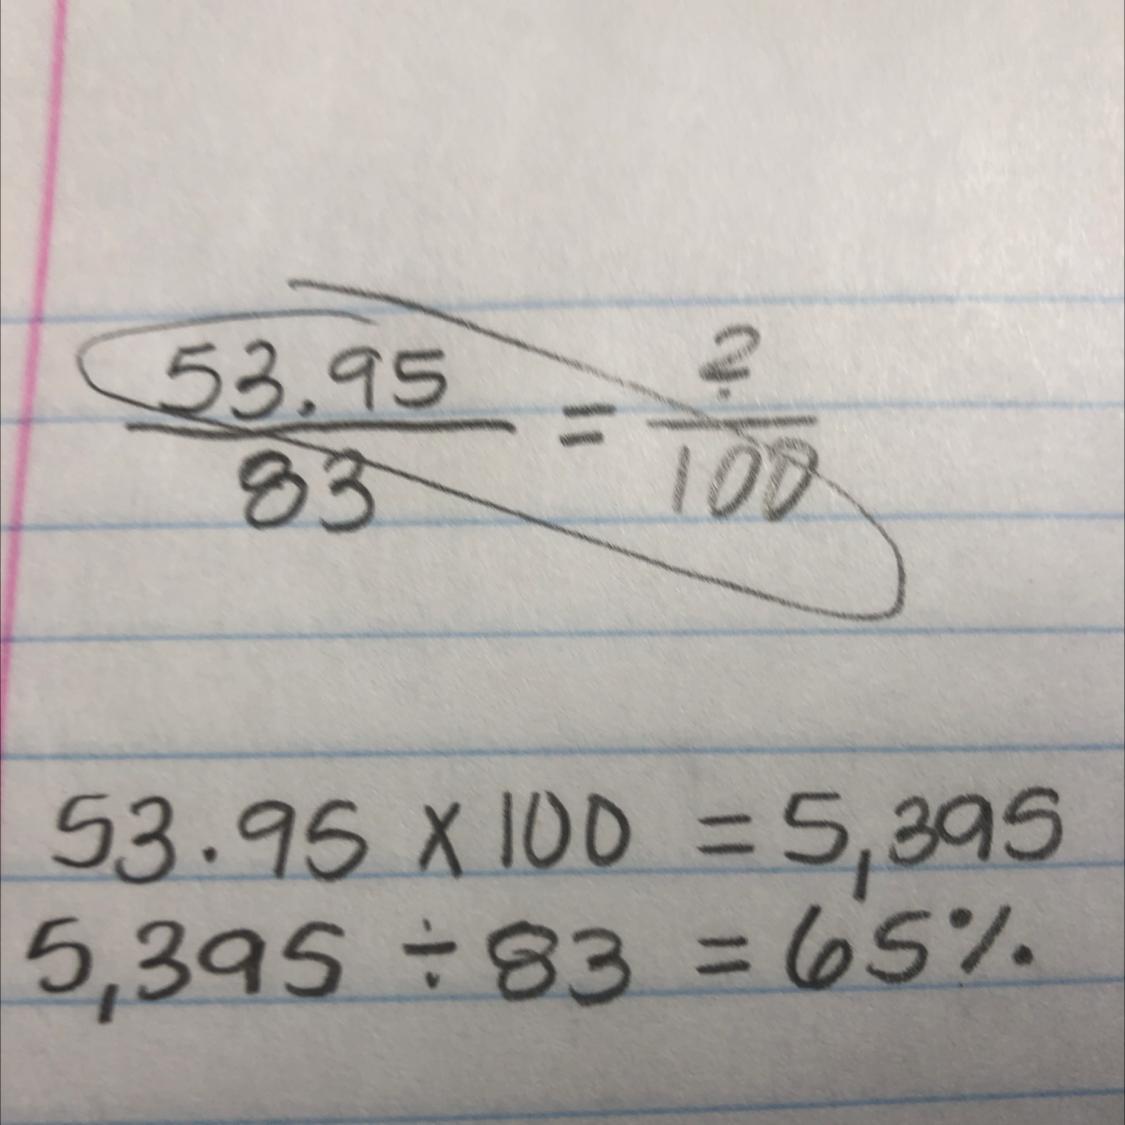 53.95 / 83 = ? / 100
53.95 x 100 = 5,395
5,395 ÷ 83 = 65%